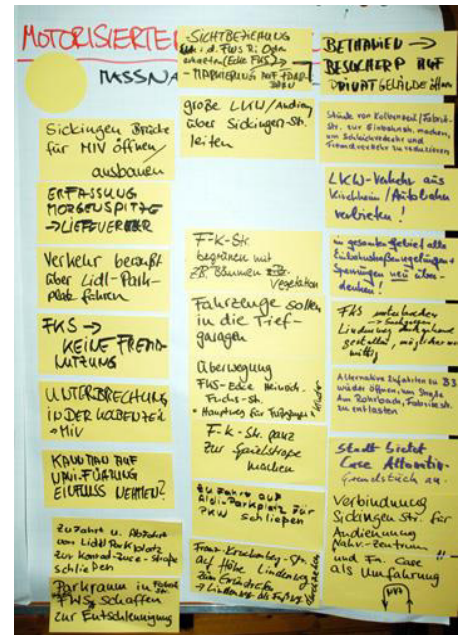 MOTORISIERTE
MASSNA
Sickingen Brücke
für MIV öffnen/
ausbauen
ERFASSUNG
MORGENSPITZE
→ LIEFERVERKEHR
Verkehr
über Lidl-Park-
platz fahren
FKS →
KEINE FREMD-
NUTZUNG
UNTERBRECHUNG
IN DER KOLBENZEIL
→ MIV
KANN MAN AUF
NAVI-FÜHRUNG
EINFLUSS NEHMEN?
Zufahrt u. Abfahrt
von Lidl Parkplatz
zur Konrad-Zuse-Straße
schließen
Parkraum in
FWS schaffen
zur Entschleunigung
-SICHTBEZIEHUNG
i. d. FWS Ri. Ortn
(Ecke FKS)
- MARKIERUNG AUF FAHR-
BAHN
große LKW/Andien
über Sickingen-Str.
leiten
F-K-Str.
begrünen mit
z.B. Bäumen
Vegetation
Fahrzeuge sollen
in die Tief-
garagen
Überwegung
FKS-Ecke Heinrich-
Fuchs-Str.
F-K-Str. ganz
zur Spielstraße
machen
Zufahrt auf
Aldi-Parkplatz für
PKW schließen
Franz-Kruckenberg-Str.
auf Höhe Lindenweg
zum
→ Lindenweg als
BETHANIEN →
BESUCHERP AUF
PRIVATGELÄNDE öffnen
Kolbenzeil/Fabrik-
Str. zur Einbahnstr. machen,
um Schleichverkehr und
Fremdverkehr zu reduzieren
LKW-Verkehr aus
Kirchheim/Autobahn
verbieten!
im gesamten Gebiet alle
Einbahnstraßenregelungen +
Sperrungen neu über-
denken!
FKS
Lindenweg
gestalten, möglicher
mittig
Alternative Zufahrten zu B3
wieder öffnen, um Straße
Am Rohrbach, Fabrikstr.
zu entlasten
Stadt bietet
Case Alternativ-
Grundstück an.
Verbindung
Sickingen Str. für
Andienung
Nahv.-Zentrum
und Fa. Case !!
als Umfahrung